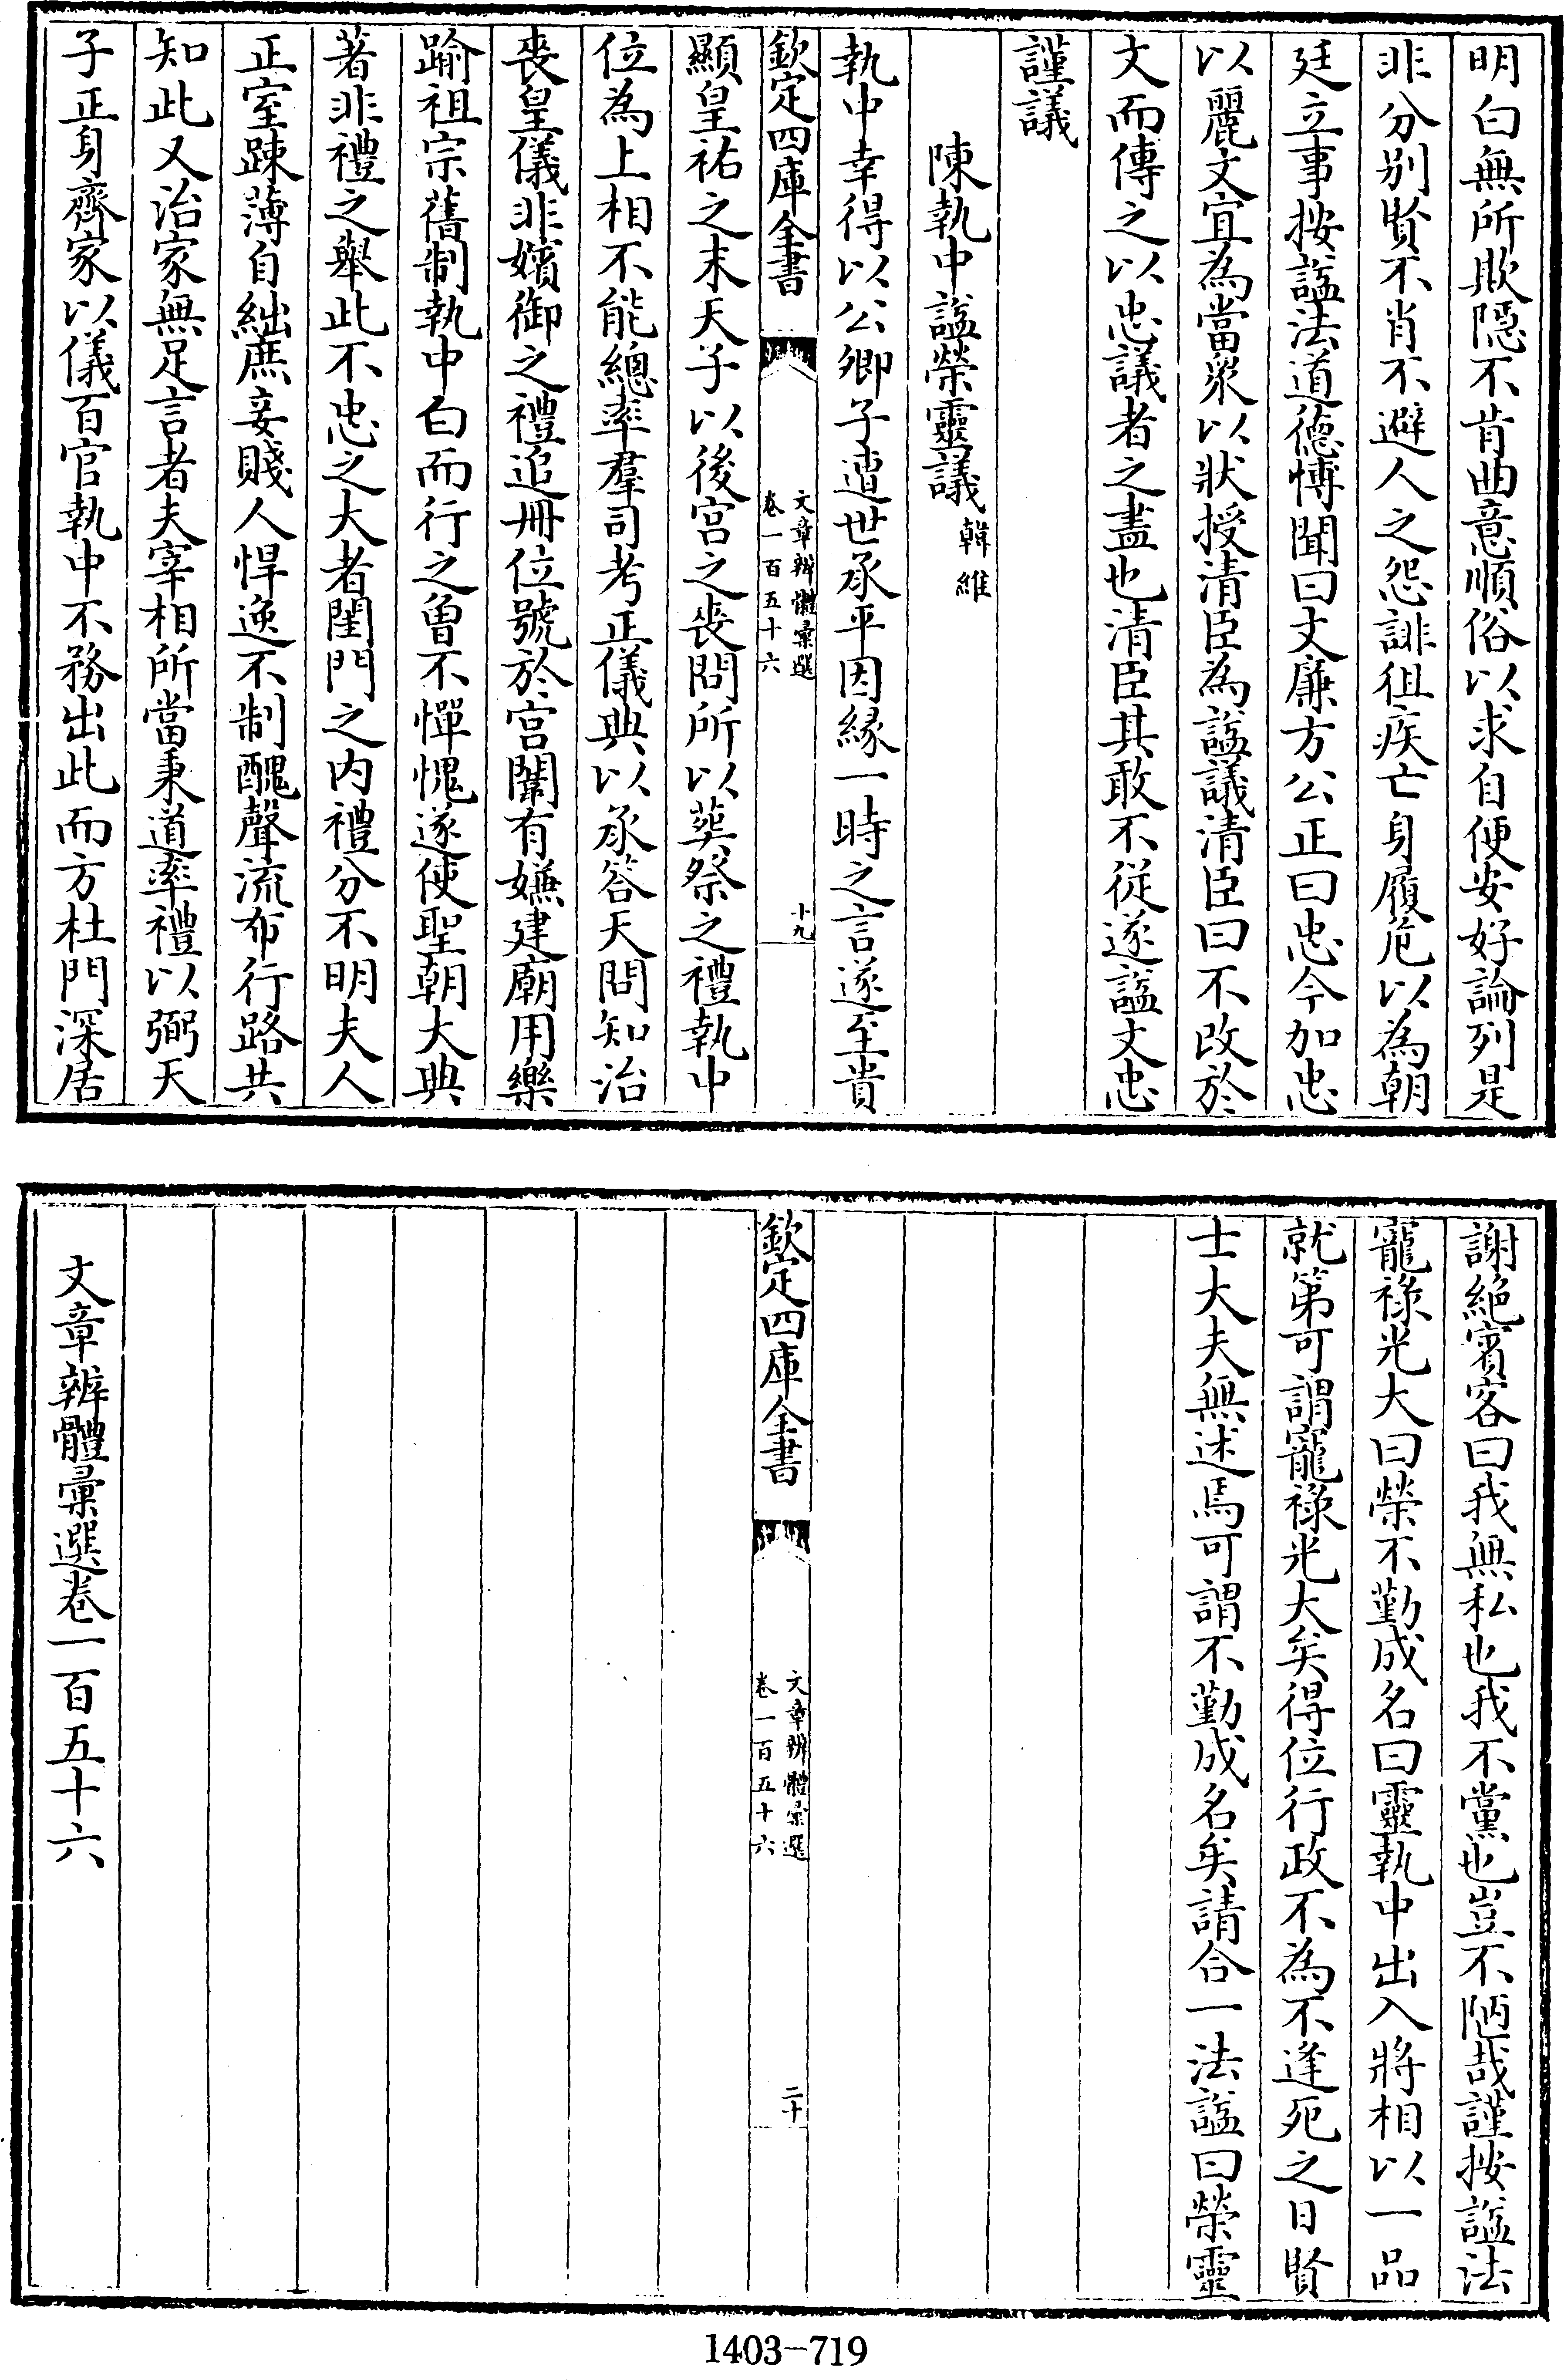 明白無所欺隱不肯曲意順俗以求自便安好論列是
非分别賢不肖不避人之怨誹徂疾亡身履危以為朝
廷立事按諡法道德愽聞曰文廉方公正曰忠今加忠
以麗文宜為當衆以狀授清臣為諡議清臣曰不改於
文而傳之以忠議者之盡也清臣其敢不從遂諡文忠
謹議
陳執中諡榮靈議 韓維
執中幸得以公卿子遭世承平因縁一時之言遂至貴
欽定四庫全書
文章辨體彚選
卷一百五十六
十九
顯皇祐之末天子以後宫之喪問所以葬祭之禮執中
位為上相不能總率羣司考正儀典以承答天問知治
喪皇儀非嬪御之禮追冊位號於宫闈有嫌建廟用樂
踰祖宗舊制執中白而行之曽不憚愧遂使聖朝大典
著非禮之舉此不忠之大者閨門之内禮分不明夫人
正室踈薄自絀庶妾賤人悍逸不制醜聲流布行路共
知此又治家無足言者夫宰相所當秉道率禮以弼天
子正身齊家以儀百官執中不務出此而方杜門深居
謝絶賓客曰我無私也我不黨也豈不陋哉謹按諡法
寵祿光大曰榮不勤成名曰靈執中出入將相以一品
就第可謂寵祿光大矣得位行政不為不逢死之日賢
士大夫無述焉可謂不勤成名矣請合一法諡曰榮靈
欽定四庫全書
文章辨體彚選
卷一百五十六
二十
文章辨體彚選卷一百五十六
1403-719